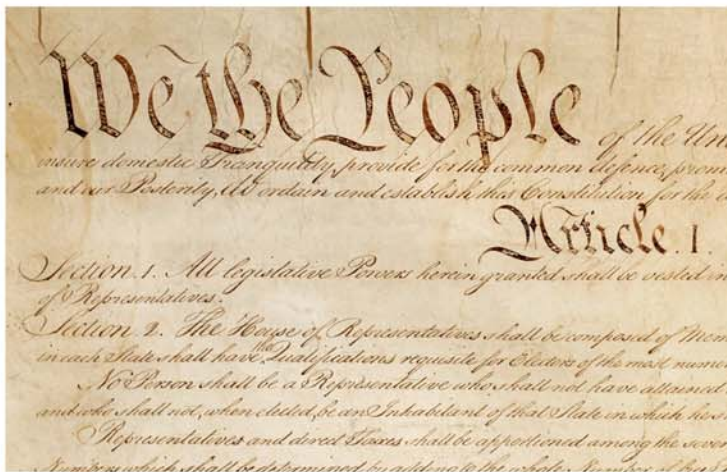 We the People of the Uni
insure domestic Tranquility, provide for the common defence, promo
and our Posterity, do ordain and establish this Constitution for the U
Article. I.
Section. 1. All legislative Powers herein granted shall be vested in
of Representatives.
Section. 2. The House of Representatives shall be composed of Mem
in each State shall have the Qualifications requisite for Electors of the most numero
No Person shall be a Representative who shall not have attained
and who shall not, when elected, be an Inhabitant of that State in which he s
Representatives and direct Taxes shall be apportioned among the seve
Numbers, which shall be determined by adding to the whole Number of